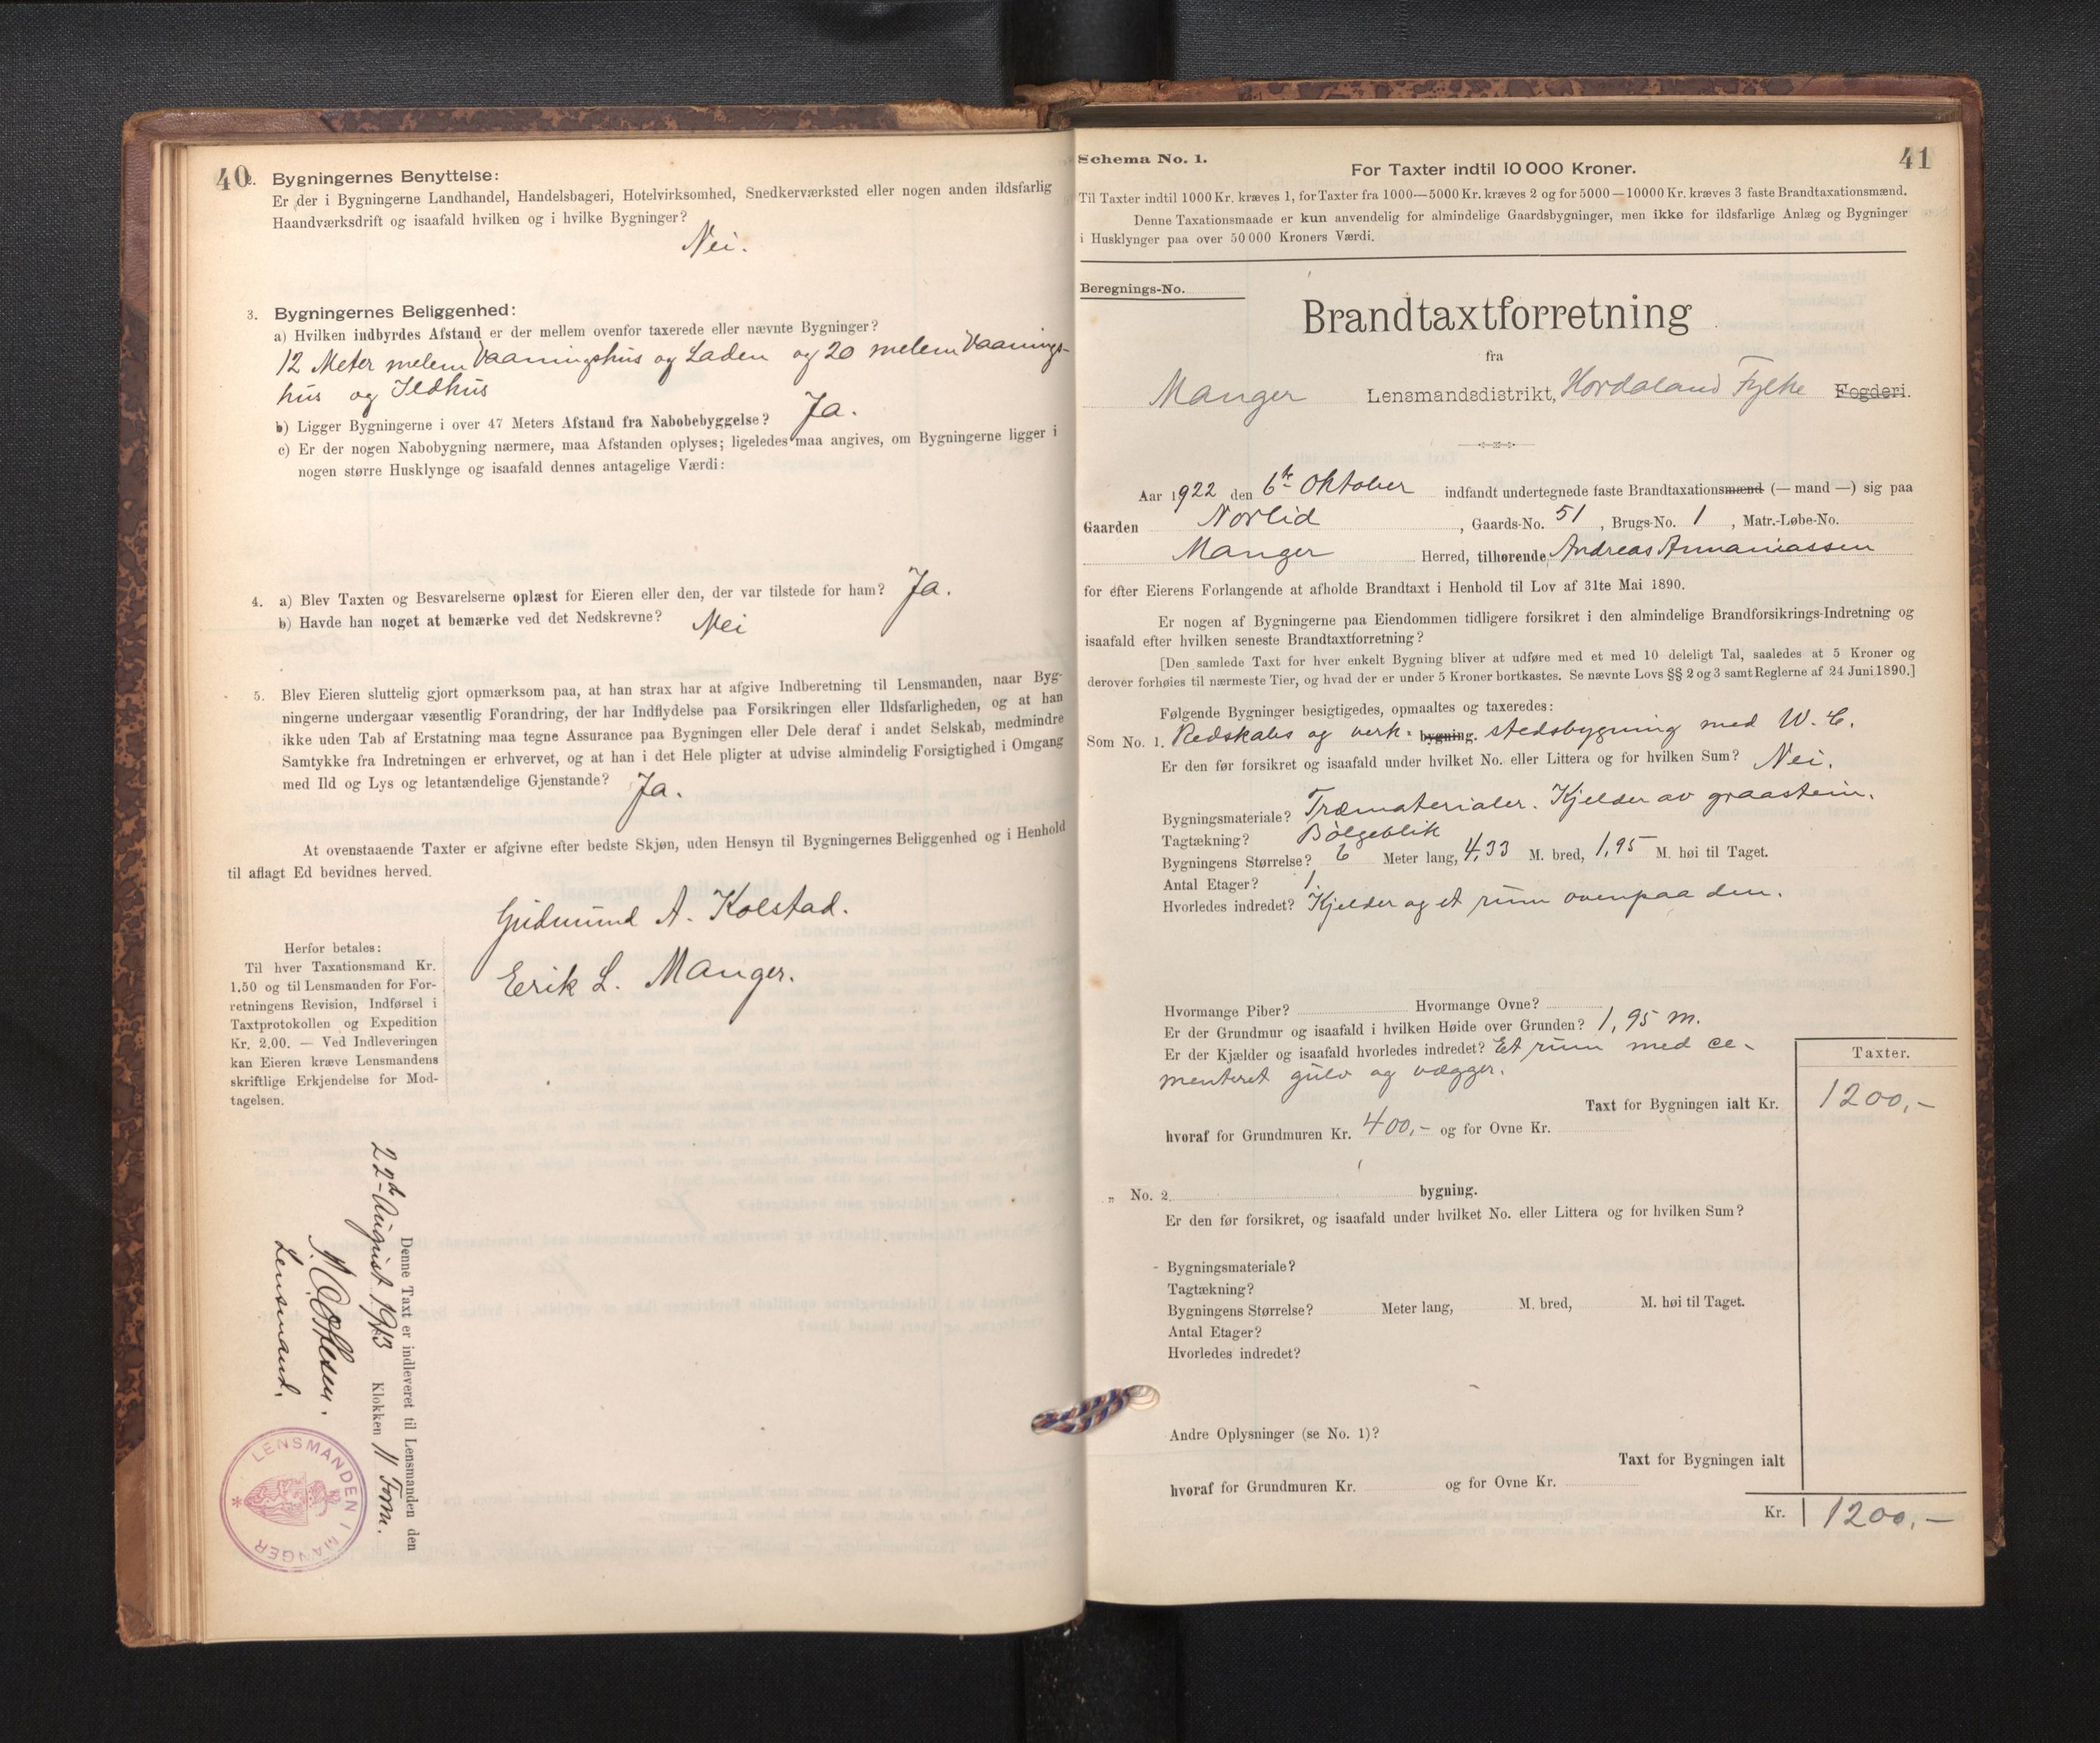 40
2. Bygningernes Benyttelse:
Er der i Bygningerne Landhandel, Handelsbageri, Hotelvirksomhed, Snedkerværksted eller nogen anden ildsfarlig
Haandværksdrift og isaafald hvilken og i hvilke Bygninger?
Nei.
3. Bygningernes Beliggenhed:
a) Hvilken indbyrdes Afstand er der mellem ovenfor taxerede eller nævnte Bygninger?
12 Meter melem Vaaningshus og Laden og 20 melem Vaanings-
hus og Ildhus
b) Ligger Bygningerne i over 47 Meters Afstand fra Nabobebyggelse? Ja.
c) Er der nogen Nabobygning nærmere, maa Afstanden oplyses; ligeledes maa angives, om Bygningerne ligger i
nogen større Husklynge og isaafald dennes antagelige Værdi:
4. a) Blev Taxten og Besvarelserne oplæst for Eieren eller den, der var tilstede for ham? Ja.
b) Havde han noget at bemærke ved det Nedskrevne? Nei
5. Blev Eieren sluttelig gjort opmærksom paa, at han strax har at afgive Indberetning til Lensmanden, naar Byg-
ningerne undergaar væsentlig Forandring, der har Indflydelse paa Forsikringen eller Ildsfarligheden, og at han
ikke uden Tab af Erstatning maa tegne Assurance paa Bygningen eller Dele deraf i andet Selskab, medmindre
Samtykke fra Indretningen er erhvervet, og at han i det Hele pligter at udvise almindelig Forsigtighed i Omgang
med Ild og Lys og letantændelige Gjenstande? Ja.
At ovenstaaende Taxter er afgivne efter bedste Skjøn, uden Hensyn til Bygningernes Beliggenhed og i Henhold
til aflagt Ed bevidnes herved.
Gudmund A. Kolstad.
Erik L. Manger.
Herfor betales:
Til hver Taxationsmand Kr.
1.50 og til Lensmanden for For-
retningens Revision, Indførsel i
Taxtprotokollen og Expedition
Kr. 2.00. — Ved Indleveringen
kan Eieren kræve Lensmandens
skriftlige Erkjendelse for Mod-
tagelsen.
Denne Taxt er indleveret til Lensmanden den
22de August 1913 Klokken 11 Form.
Lensmand.
LENSMANDEN I MANGER
41
Schema No. 1.
For Taxter indtil 10 000 Kroner.
Til Taxter indtil 1000 Kr. kræves 1, for Taxter fra 1000—5000 Kr. kræves 2 og for 5000—10000 Kr. kræves 3 faste Brandtaxationsmænd.
Denne Taxationsmaade er kun anvendelig for almindelige Gaardsbygninger, men ikke for ildsfarlige Anlæg og Bygninger
i Husklynger paa over 50 000 Kroners Værdi.
Beregnings-No.
Brandtaxtforretning
fra
Manger Lensmandsdistrikt, Hordaland Fylke Fogderi.
Aar 1922 den 6te Oktober indfandt undertegnede faste Brandtaxationsmænd (— mand —) sig paa
Gaarden Norlid, Gaards-No. 51, Brugs-No. 1, Matr.-Løbe-No.
Manger Herred, tilhørende Andreas Annaniassen
for efter Eierens Forlangende at afholde Brandtaxt i Henhold til Lov af 31te Mai 1890.
Er nogen af Bygningerne paa Eiendommen tidligere forsikret i den almindelige Brandforsikrings-Indretning og
isaafald efter hvilken seneste Brandtaxtforretning?
[Den samlede Taxt for hver enkelt Bygning bliver at udføre med et med 10 deleligt Tal, saaledes at 5 Kroner og
derover forhøies til nærmeste Tier, og hvad der er under 5 Kroner bortkastes. Se nævnte Lovs §§ 2 og 3 samt Reglerne af 24 Juni 1890.]
Følgende Bygninger besigtigedes, opmaaltes og taxeredes:
Som No. 1. Redskabs og verk- bygning. stedsbygning med W. C.
Er den før forsikret og isaafald under hvilket No. eller Littera og for hvilken Sum? Nei.
Bygningsmateriale? Træmaterialer. Kjelder av graastein.
Tagtækning? Bølgeblik
Bygningens Størrelse? 6 Meter lang, 4,33 M. bred, 1,95 M. høi til Taget.
Antal Etager? 1.
Hvorledes indredet? Kjelder og et rum ovenpaa den.
Hvormange Piber? Hvormange Ovne?
Er der Grundmur og isaafald i hvilken Høide over Grunden? 1,95 m.
Er der Kjælder og isaafald hvorledes indredet? Et rum med ce-
menteret gulv og vægger.
Taxter.
Taxt for Bygningen ialt Kr. 1200,-
hvoraf for Grundmuren Kr. 400,- og for Ovne Kr.
„ No. 2. bygning.
Er den før forsikret, og isaafald under hvilket No. eller Littera og for hvilken Sum?
Bygningsmateriale?
Tagtækning?
Bygningens Størrelse? Meter lang, M. bred, M. høi til Taget.
Antal Etager?
Hvorledes indredet?
Andre Oplysninger (se No. 1)?
Taxt for Bygningen ialt
hvoraf for Grundmuren Kr. og for Ovne Kr.
Kr. 1200,-